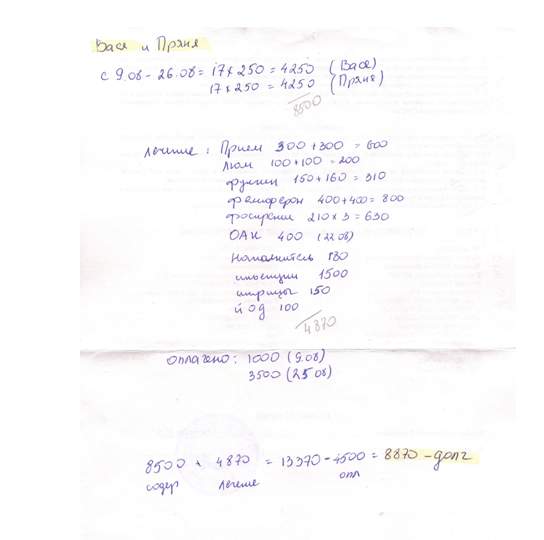 Васе и Пряня
с 9.08 - 26.08 = 17 × 250 = 4250 (Васе)
17 × 250 = 4250 (Пряня)
8500
Лечение: Прием 300 + 300 = 600
люм 100 + 100 = 200
фунгин 150 + 160 = 310
400 + 400 = 800
210 × 3 = 630
ОАК 400 (22.08)
Наполнитель 180
инъекции 1500
шприцы 150
йод 100
4870
оплачено: 1000 (9.08)
3500 (25.08)
8500 + 4870 = 13370 - 4500 = 8870 - долг
содер лечение опл